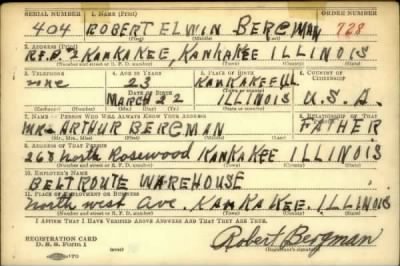 SERIAL NUMBER 1. NAME (Print) ORDER NUMBER
404 ROBERT ELWIN BERGMAN 728
(First) (Middle) (Last)
2. ADDRESS (Print)
R.F.D 2 KANKAKEE, KANKAKEE ILLINOIS
(Number and street or R. F. D. number) (Town) (County) (State)
3. TELEPHONE 4. AGE IN YEARS 5. PLACE OF BIRTH 6. COUNTRY OF CITIZENSHIP
none 23 KANKAKEE
DATE OF BIRTH
MARCH 22 ILLINOIS U.S.A.
(Exchange) (Number) (Mo.) (Day) (Yr.) (State or country)
7. NAME OF PERSON WHO WILL ALWAYS KNOW YOUR ADDRESS RELATIONSHIP OF THAT PERSON
ARTHUR BERGMAN FATHER
(Mr., Mrs., Miss) (First) (Middle) (Last)
8. ADDRESS OF THAT PERSON
268 North Rosewood KANKAKEE ILLINOIS
(Number and street or R. F. D. number) (Town) (County) (State)
10. EMPLOYER'S NAME
BELT ROUTE WAREHOUSE
11. PLACE OF EMPLOYMENT OR BUSINESS
North west Ave. KANKAKEE. ILLINOIS
(Number and street or R. F. D. number) (Town) (County) (State)
I AFFIRM THAT I HAVE VERIFIED ABOVE ANSWERS AND THAT THEY ARE TRUE.
REGISTRATION CARD
D. S. S. Form 1
Robert Bergman
(Registrant's signature)